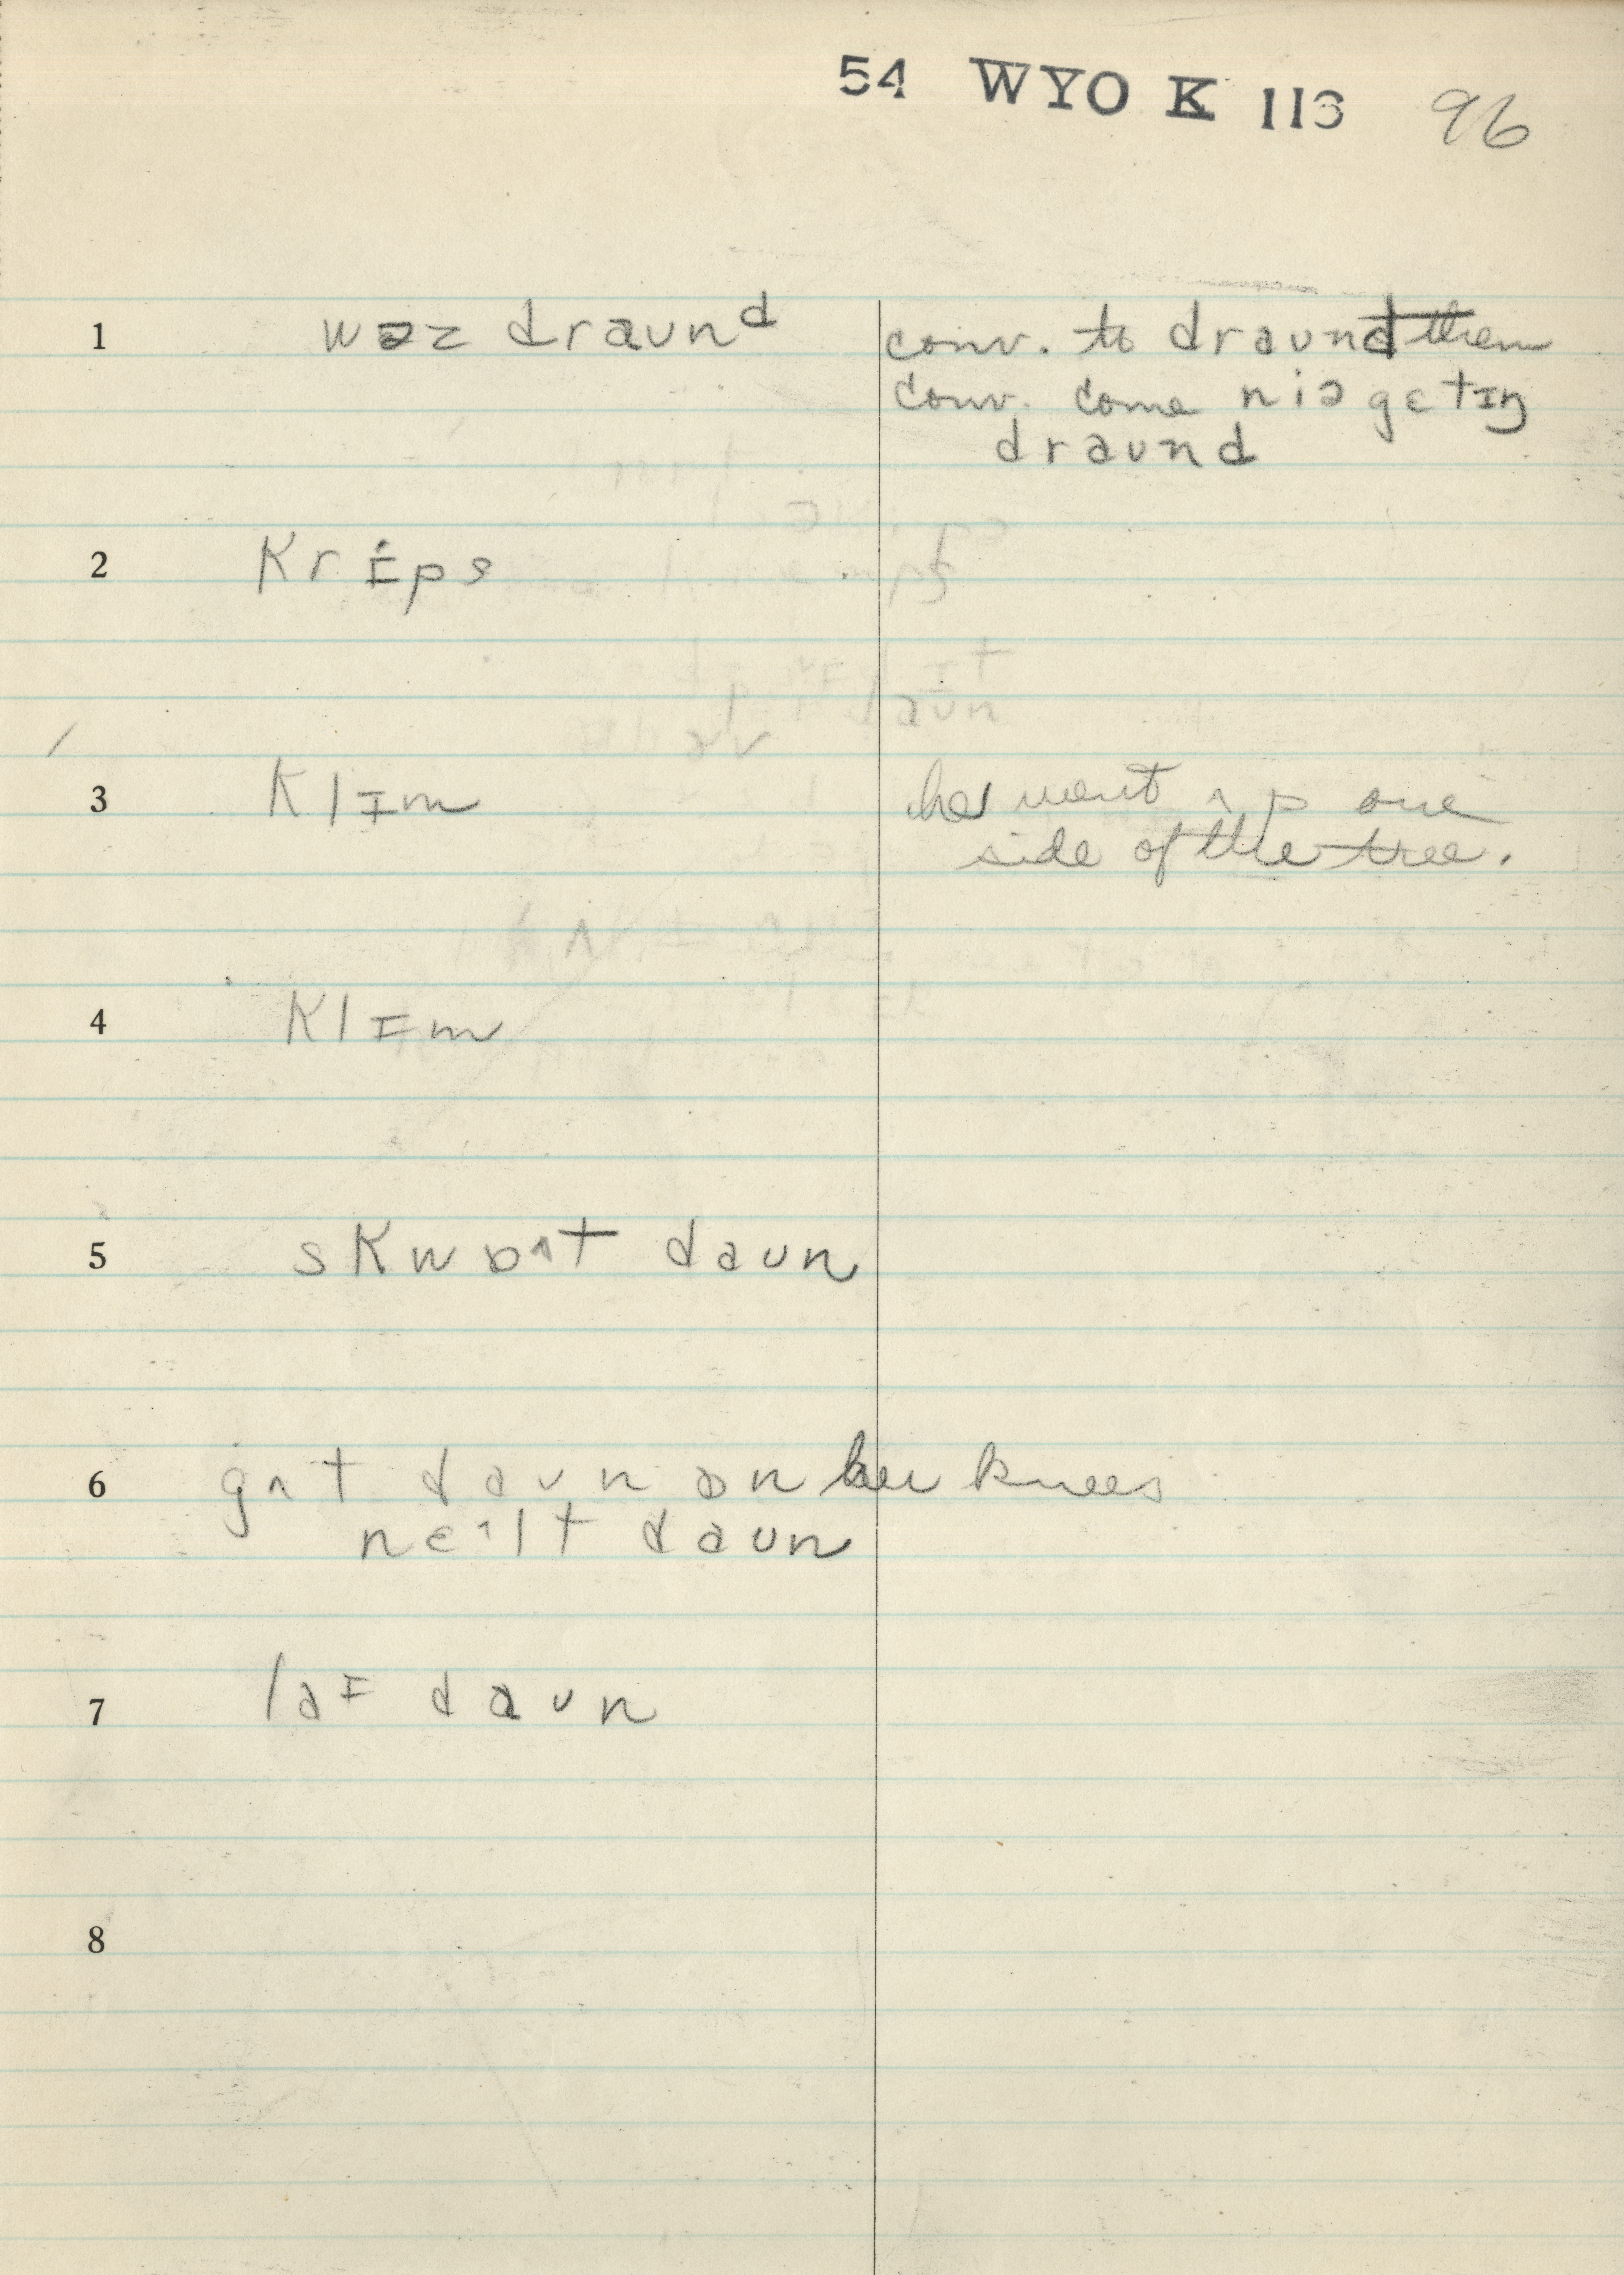 54 WYO K 113 96
1 wəz draʊnᵈ conv. to draʊnd them
conv. come niə gɛtɪŋ
draʊnd
2 Krɪ̇ps
3 Klɪm he went ʌp one
side of the tree.
4 Klɪm
5 skwɒᶺt daʊn
6 gʌt daʊn ɒn her knees
neᶦlt daʊn
7 laɪ daʊn
8